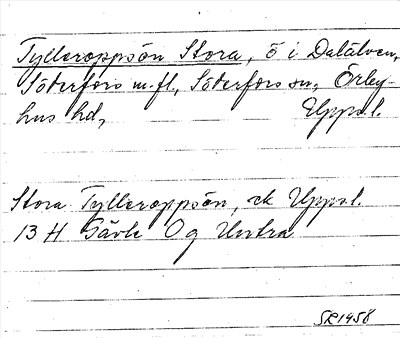 Tylleroppsön Stora, ö i Dalälven,
Söderfors m.fl., Söderfors sn, Örby-
hus hd, Uppl.
Stora Tylleroppsön, ek Uppl.
13 H Gävle Og Untra
SR1958